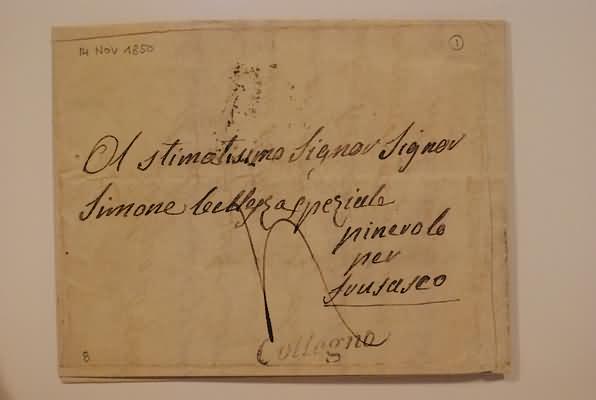 14 NOV 1850
1
Al stimatisimo Signor Signor
Simone speziale
pinerolo
per
Collegno
8